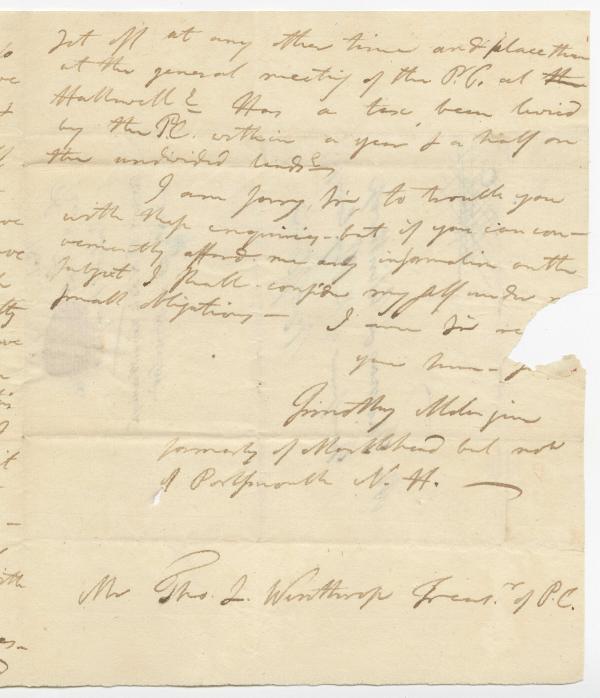 set off at any other time and place than
at the general meeting of the P.C. at the
Hallowell & Has a tax been levied
by the P.C. within a year & a half on
the undivided lands &
I am sorry, Sir, to trouble you
with these enquiries but if you can con-
veniently afford me any information on the
subject I shall confider myself under
small obligations — I am Sir
your
Timothy
formerly of Marblehead but now
of Portsmouth N. H. —
Mr Tho. L. Winthrop Treas.r of P.C.